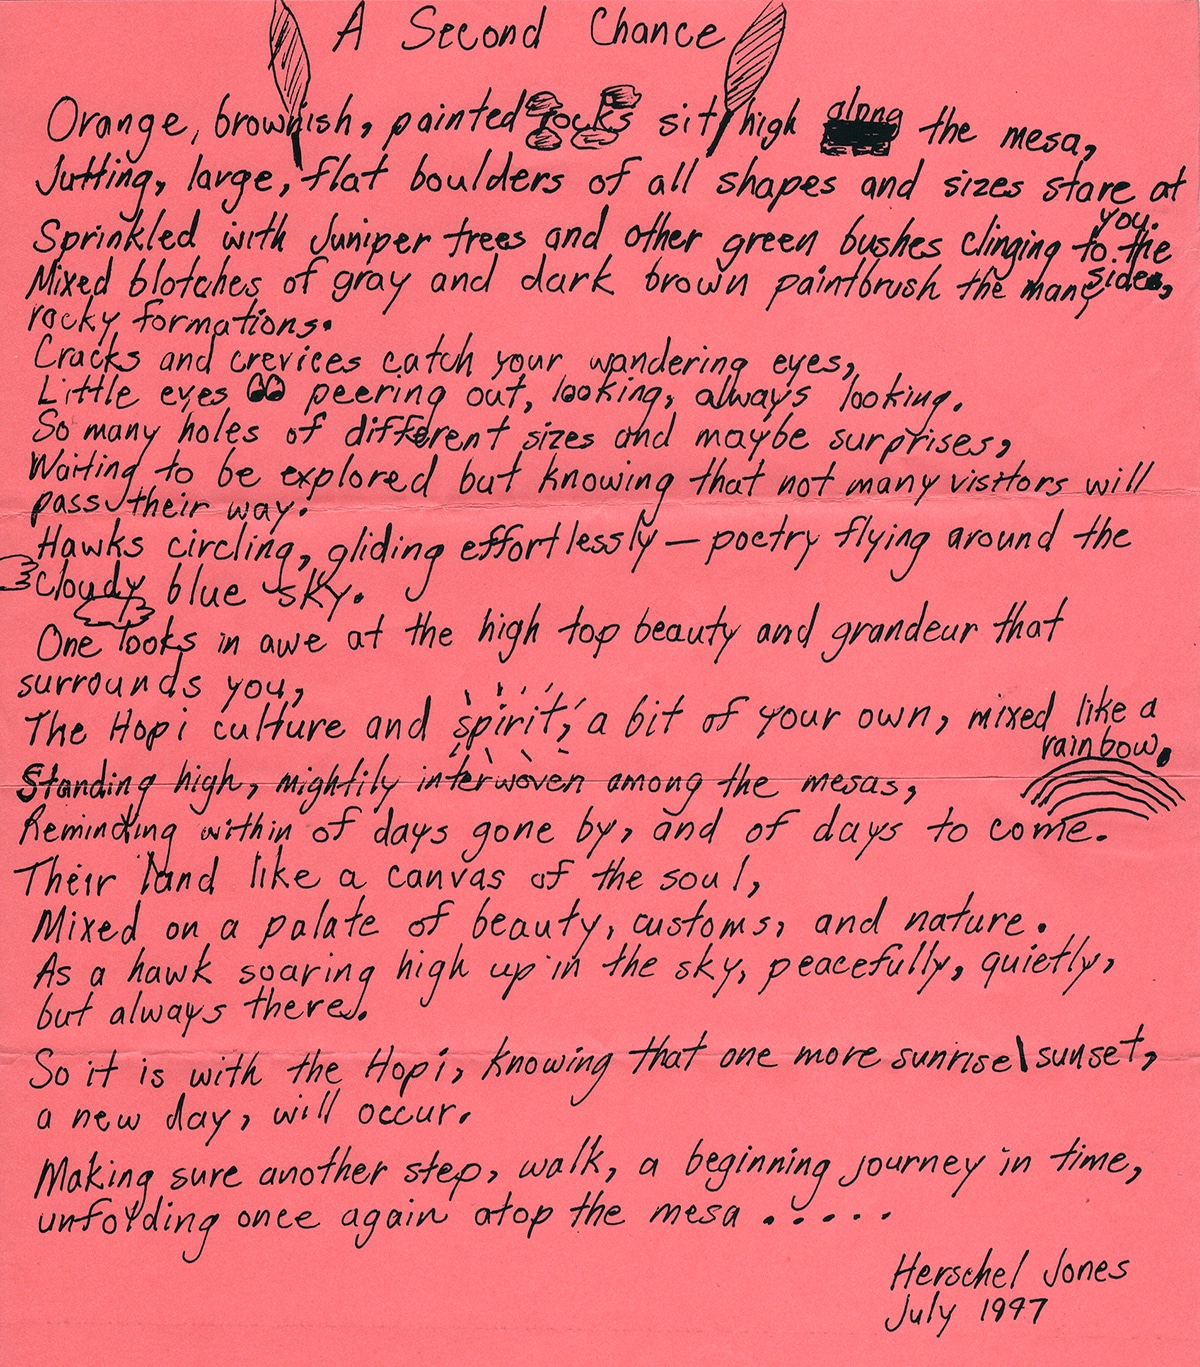 A Second Chance
Orange, brownish, painted rocks sit high along the mesa,
Jutting, large, flat boulders of all shapes and sizes stare at you.
Sprinkled with Juniper trees and other green bushes clinging to the sides,
Mixed blotches of gray and dark brown paintbrush the many
rocky formations.
Cracks and crevices catch your wandering eyes,
Little eyes peering out, looking, always looking.
So many holes of different sizes and maybe surprises,
Waiting to be explored but knowing that not many visitors will
pass their way.
Hawks circling, gliding effortlessly – poetry flying around the
cloudy blue sky.
One looks in awe at the high top beauty and grandeur that
surrounds you,
The Hopi culture and spirit, a bit of your own, mixed like a
rainbow.
Standing high, mightily interwoven among the mesas,
Reminding within of days gone by, and of days to come.
Their land like a canvas of the soul,
Mixed on a palate of beauty, customs, and nature.
As a hawk soaring high up in the sky, peacefully, quietly,
but always there.
So it is with the Hopi, knowing that one more sunrise\sunset,
a new day, will occur.
Making sure another step, walk, a beginning journey in time,
unfolding once again atop the mesa . . . . .
Herschel Jones
July 1997